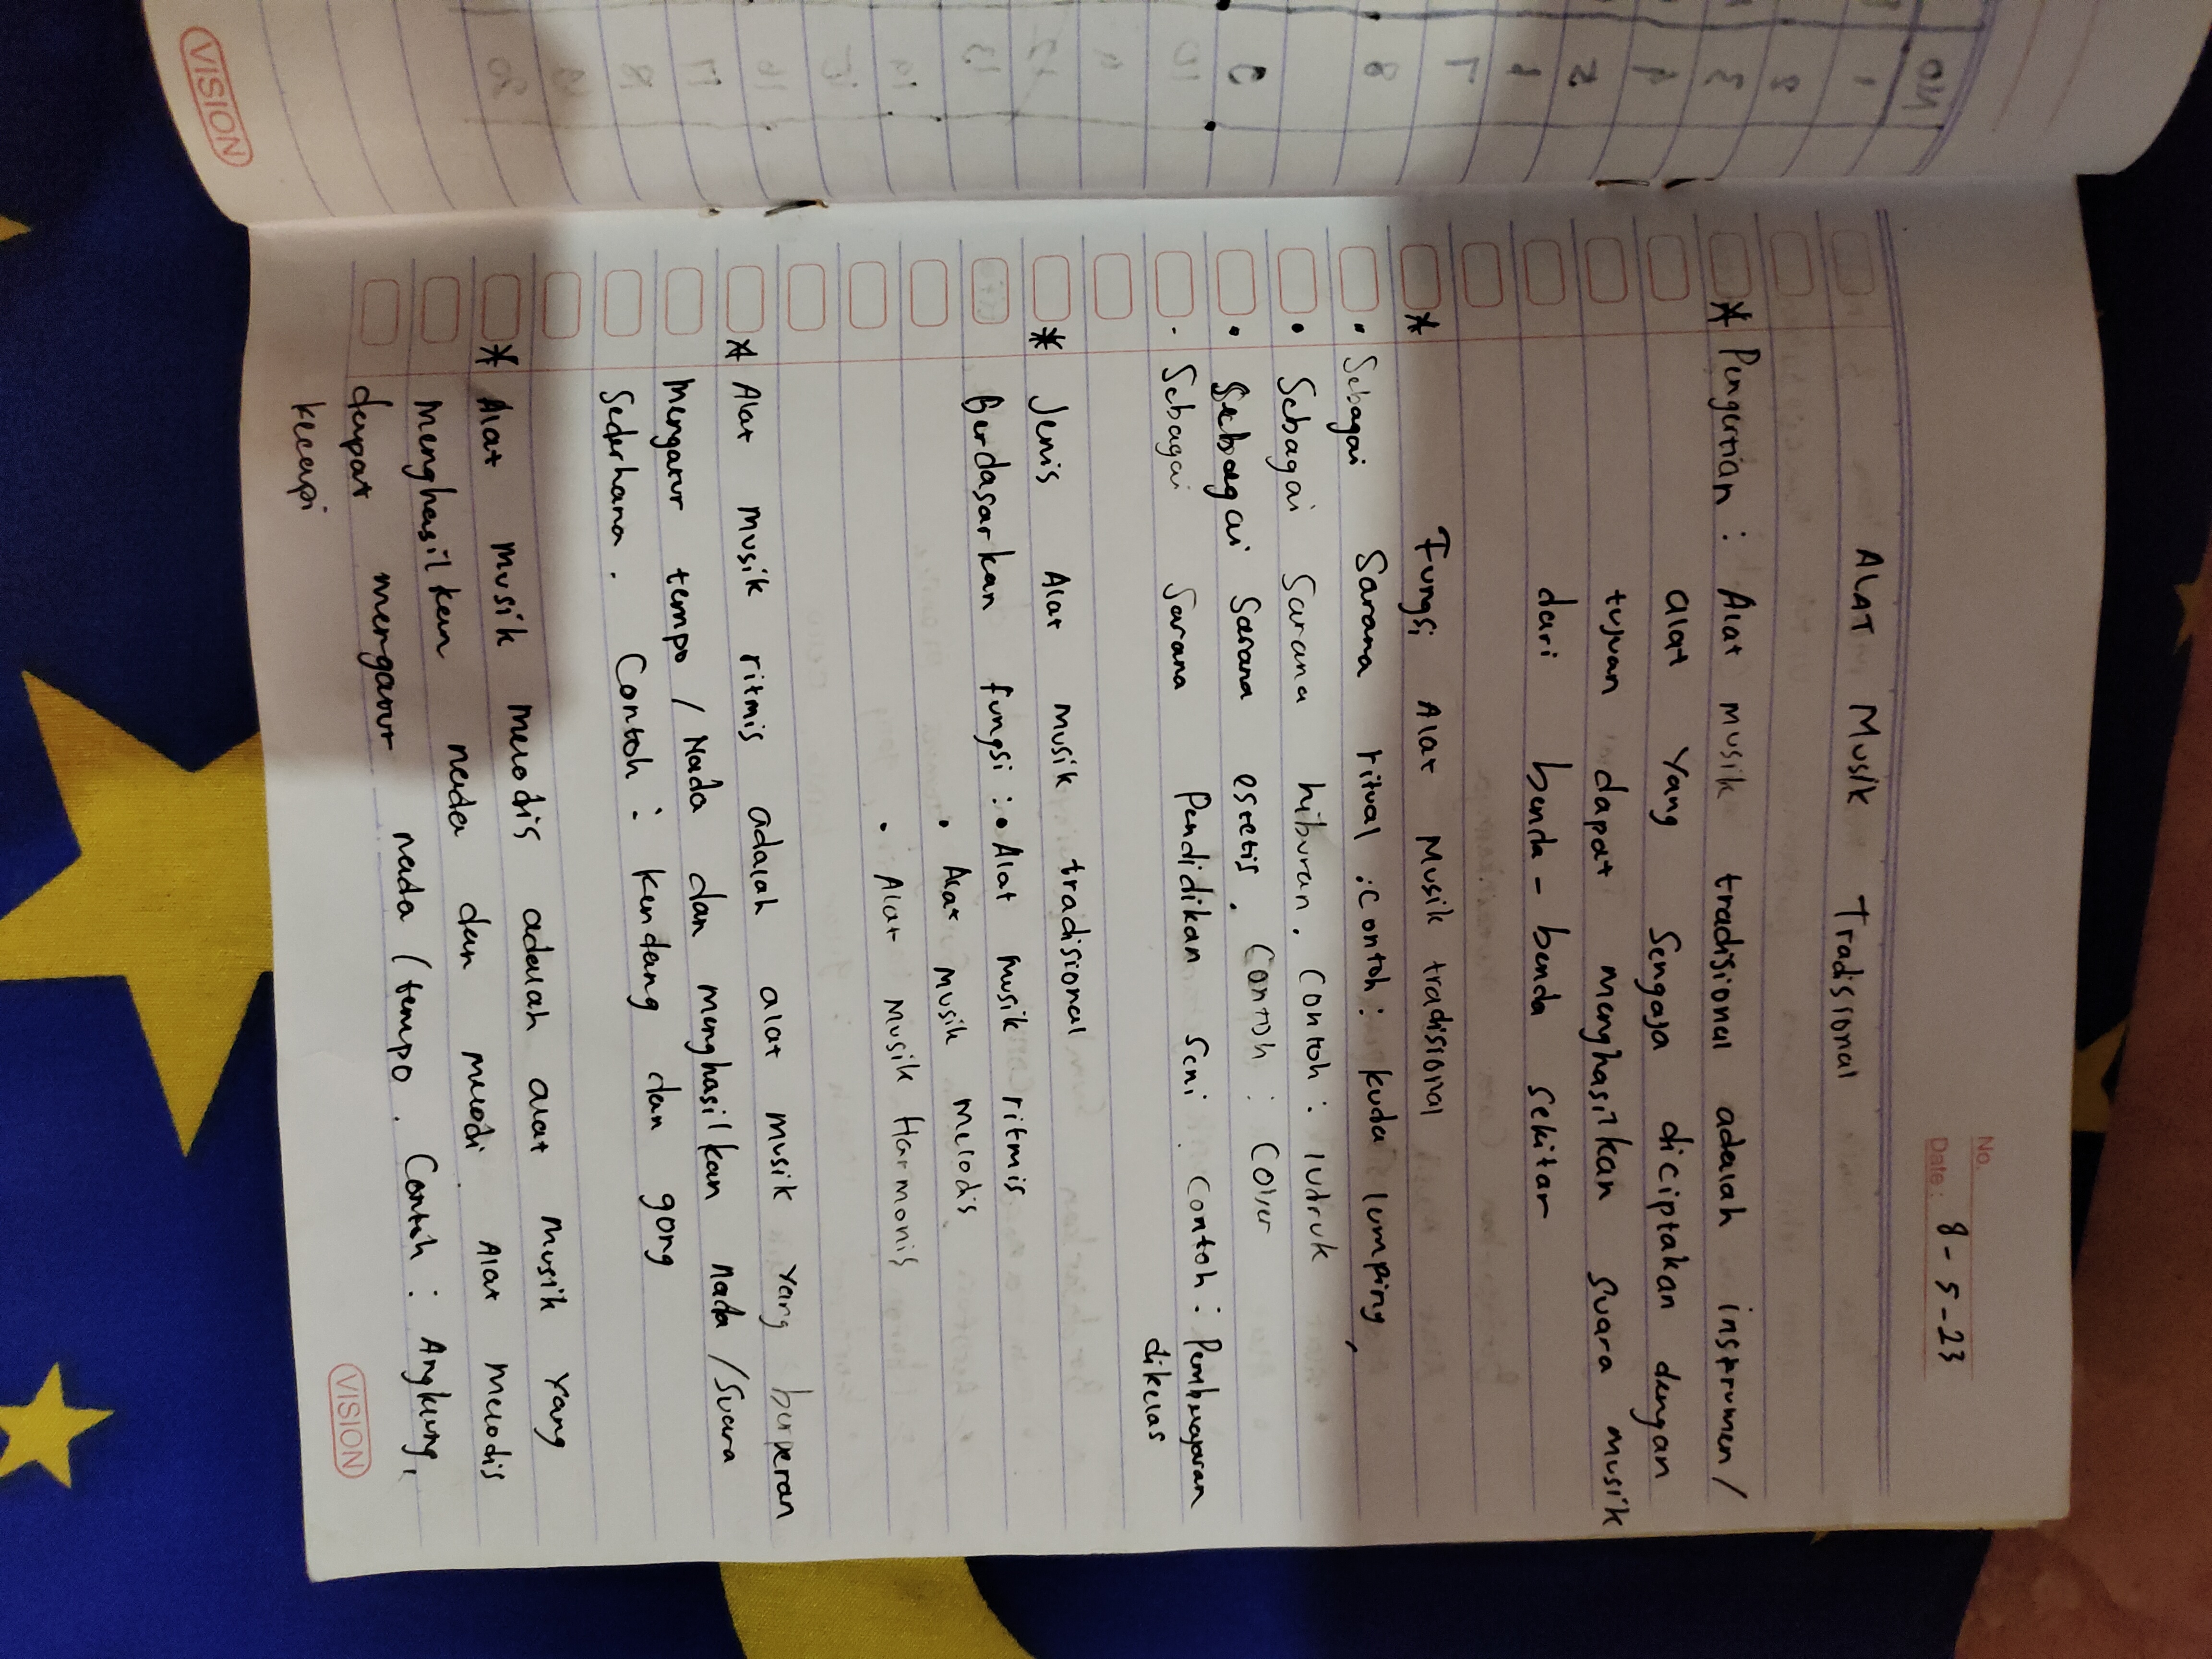 No.
Date : 8-5-23
ALAT Musik Tradisional
* Pengertian : Alat musik tradisional adalah instrumen/
alat Yang Sengaja diciptakan dengan
tujuan dapat menghasilkan suara musik
dari benda-benda sekitar
* Fungsi Alat Musik tradisional
• Sebagai Sarana ritual . Contoh : kuda lumping
• Sebagai Sarana hiburan . Contoh : ludruk
• Sebagai Sarana estetis . Contoh : Cover
- Sebagai Sarana Pendidikan Seni . Contoh : Pembelajaran
dikelas
* Jenis Alat musik tradisional
Berdasarkan fungsi : • Alat musik ritmis
• Alat musik melodis
• Alat Musik Harmonis
* Alat musik ritmis adalah alat musik yang berperan
mengatur tempo / Nada dan menghasilkan nada /suara
Sederhana . Contoh : kendang dan gong
* Alat musik melodis adalah alat musik Yang
menghasilkan nada dan melodi . Alat melodis
dapat mengatur nada / tempo . Contoh : Angklung,
kecapi
VISION
VISION
NO
1
2
3
4
5
6
7
8
9
10
11
12
13
14
15
16
17
18
19
20